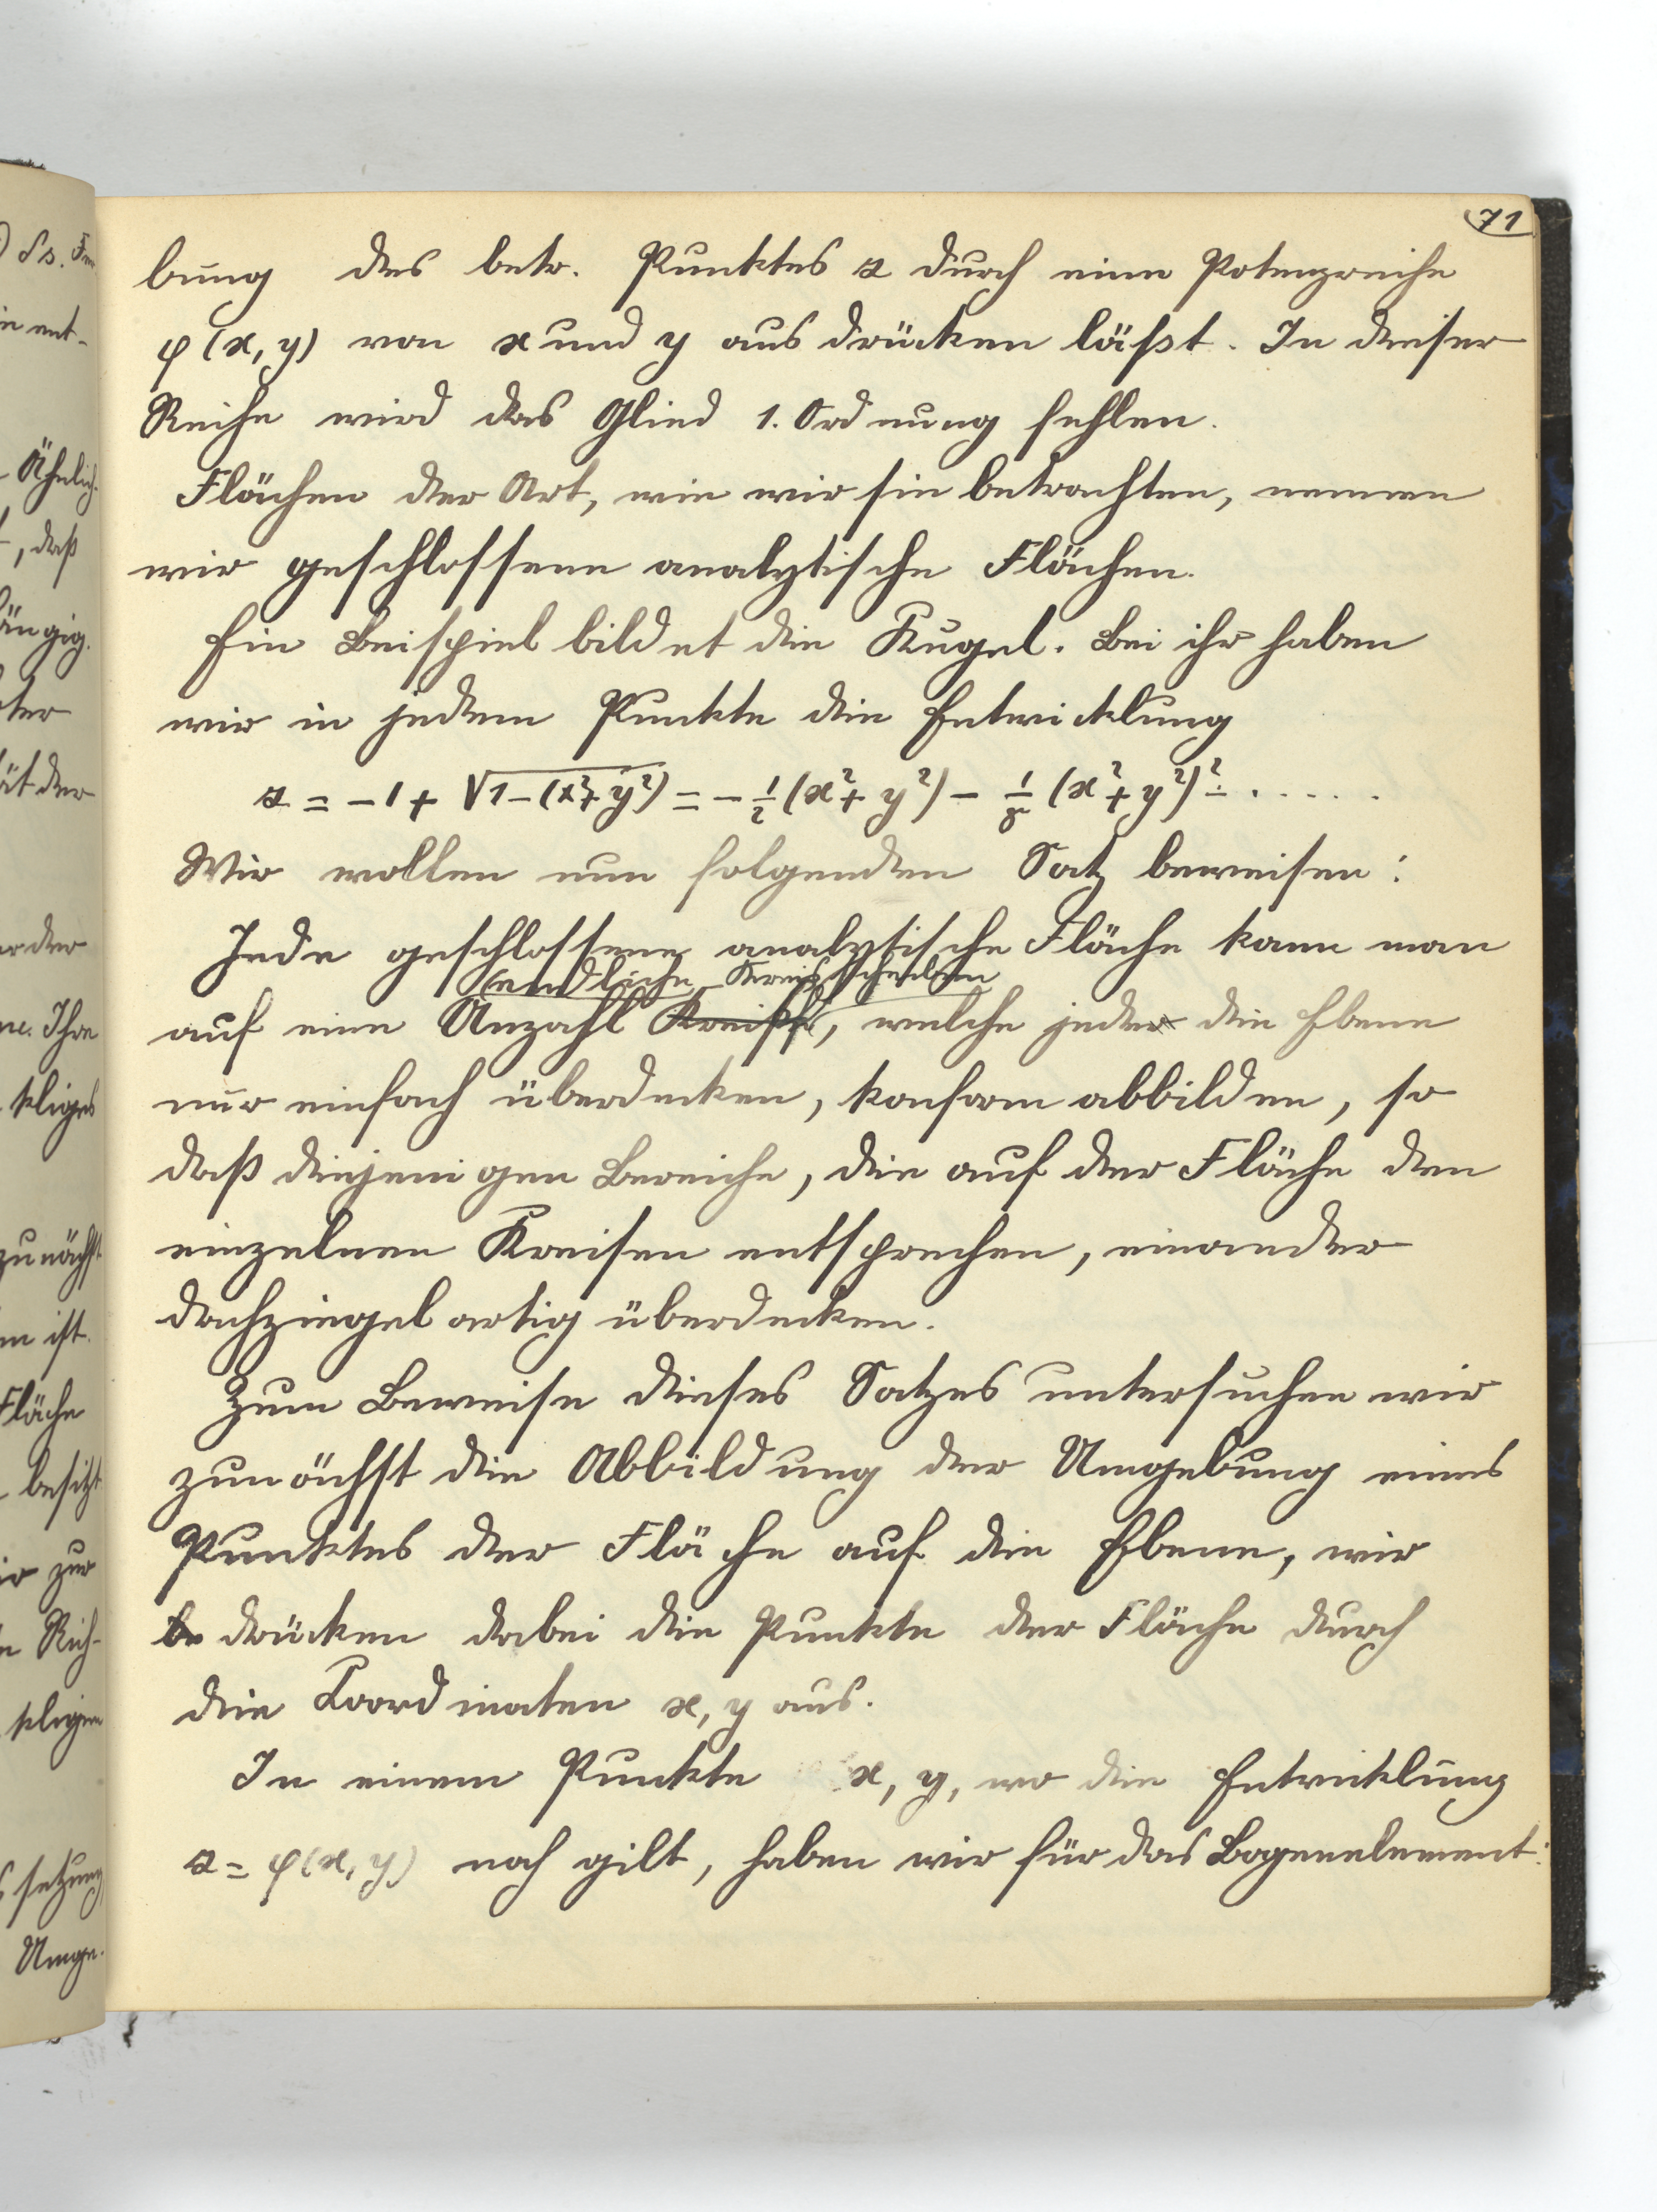 71
bung des betr. Punktes z durch eine Potenzreihe
φ(x, y) von x und y ausdrücken läßt. In dieser
Reihe wird das Glied 1. Ordnung fehlen.
Flächen der Art, wie wir sie betrachten, nennen
wir geschlossene analytische Flächen.
Ein Beispiel bildet die Kugel. Bei ihr haben
wir in jedem Punkte die Entwicklung
z = -1 + √1-(x²+y²) = - 1/2 (x²+y²) - 1/8 (x²+y²)² - .....
Wir wollen nun folgenden Satz beweisen:
Jede geschlossene analytische Fläche kann man
endliche Kreisscheiben
auf eine Anzahl Kreise, welche jede die Ebene
nur einfach überdecken, konform abbilden, so
daß diejenigen Bereiche, die auf der Fläche den
einzelnen Kreisen entsprechen, einander
dachziegelartig überdecken.
Zum Beweise dieses Satzes untersuchen wir
zunächst die Abbildung der Umgebung eines
Punktes der Fläche auf die Ebene, wir
drücken dabei die Punkte der Fläche durch
die Koordinaten x, y aus.
In einem Punkte x, y, wo die Entwicklung
z = φ(x, y) noch gilt, haben wir für das Bogenelement: